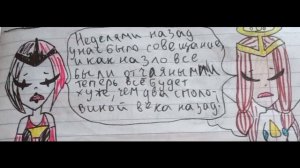 Неделями назад
у нас было совещание,
и как назло все
были отчаяными
теперь всё будет
хуже, чем два с поло-
виной века назад.